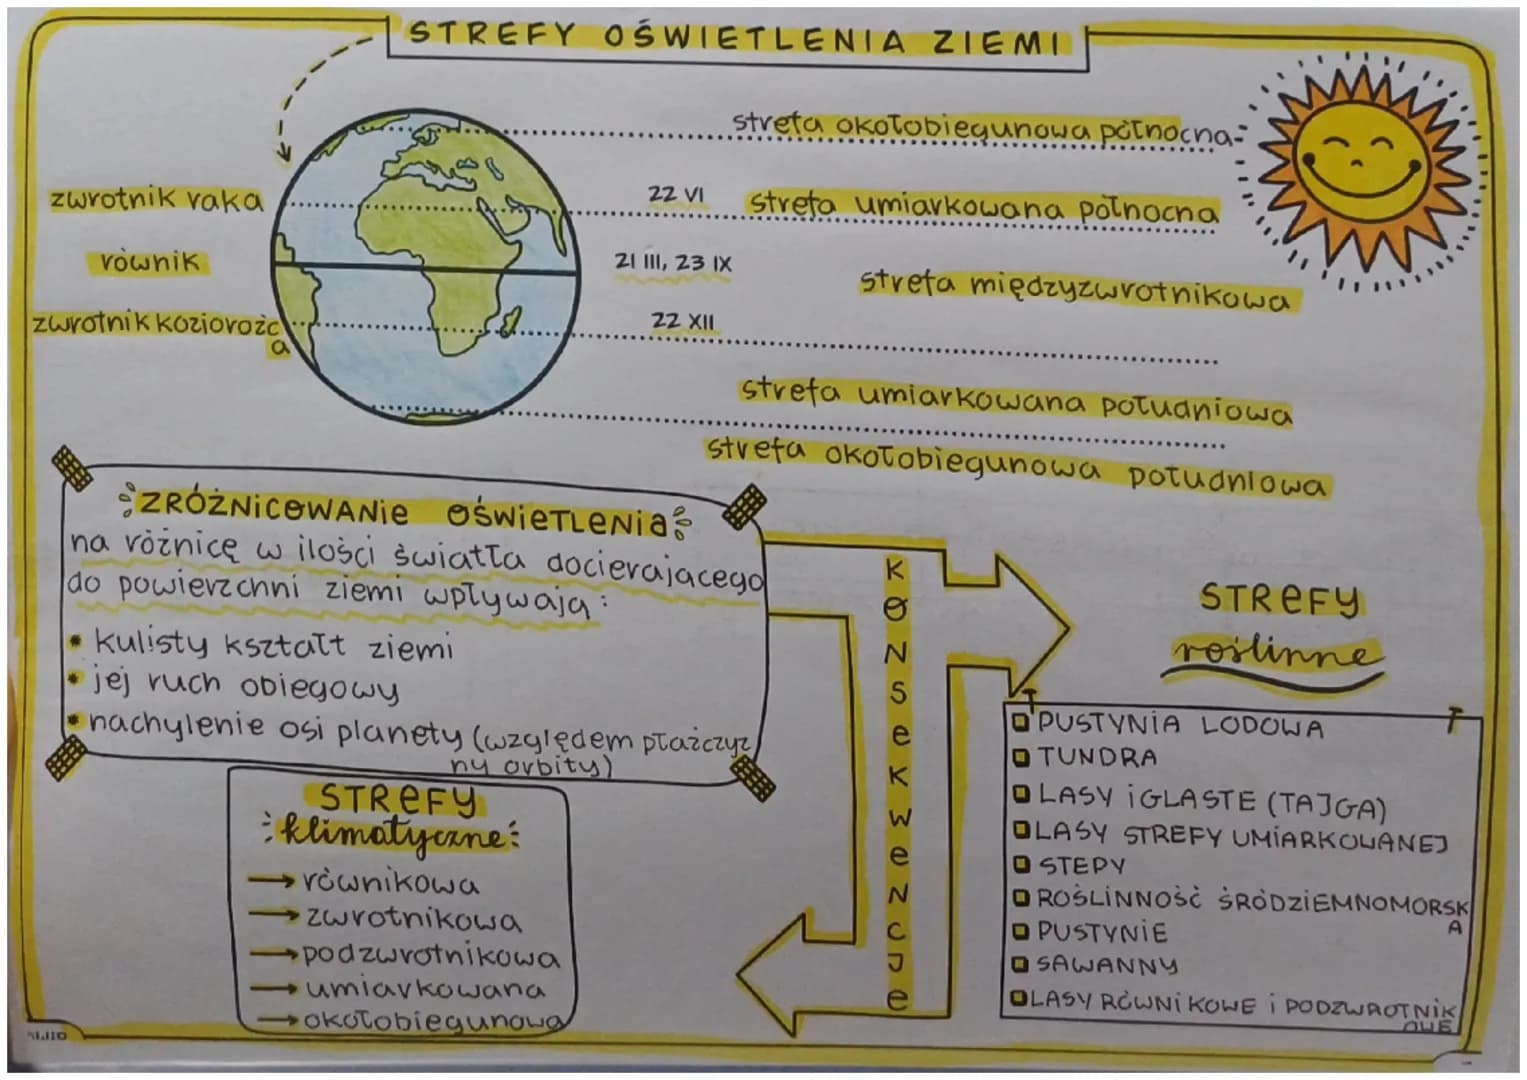 STREFY OŚWIETLENIA ZIEMI
strefa okołobiegunowa północna
zwrotnik raka
22 VI
strefa umiarkowana północna
równik
21 III, 23 IX
strefa międzyzwrotnikowa
zwrotnik koziorożc
a
22 XII
strefa umiarkowana południowa
strefa okołobiegunowa południowa
ZRÓŻNICOWANIE OŚWIETLENIA
na różnicę w ilości światła docierającego
do powierzchni ziemi wpływają:
• kulisty kształt ziemi
• jej ruch obiegowy
• nachylenie osi planety (względem płażczyz
ny orbity)
KONSEKWENCJE
STREFY
klimatyczne
→ równikowa
→ zwrotnikowa
→ podzwrotnikowa
→ umiarkowana
→ okołobiegunowa
STREFY
roślinne
PUSTYNIA LODOWA
TUNDRA
LASY IGLASTE (TAJGA)
LASY STREFY UMIARKOWANEJ
STEPY
ROŚLINNOŚĆ ŚRÓDZIEMNOMORSK
A
PUSTYNIE
SAWANNY
LASY RÓWNIKOWE I PODZWROTNIK
OWE